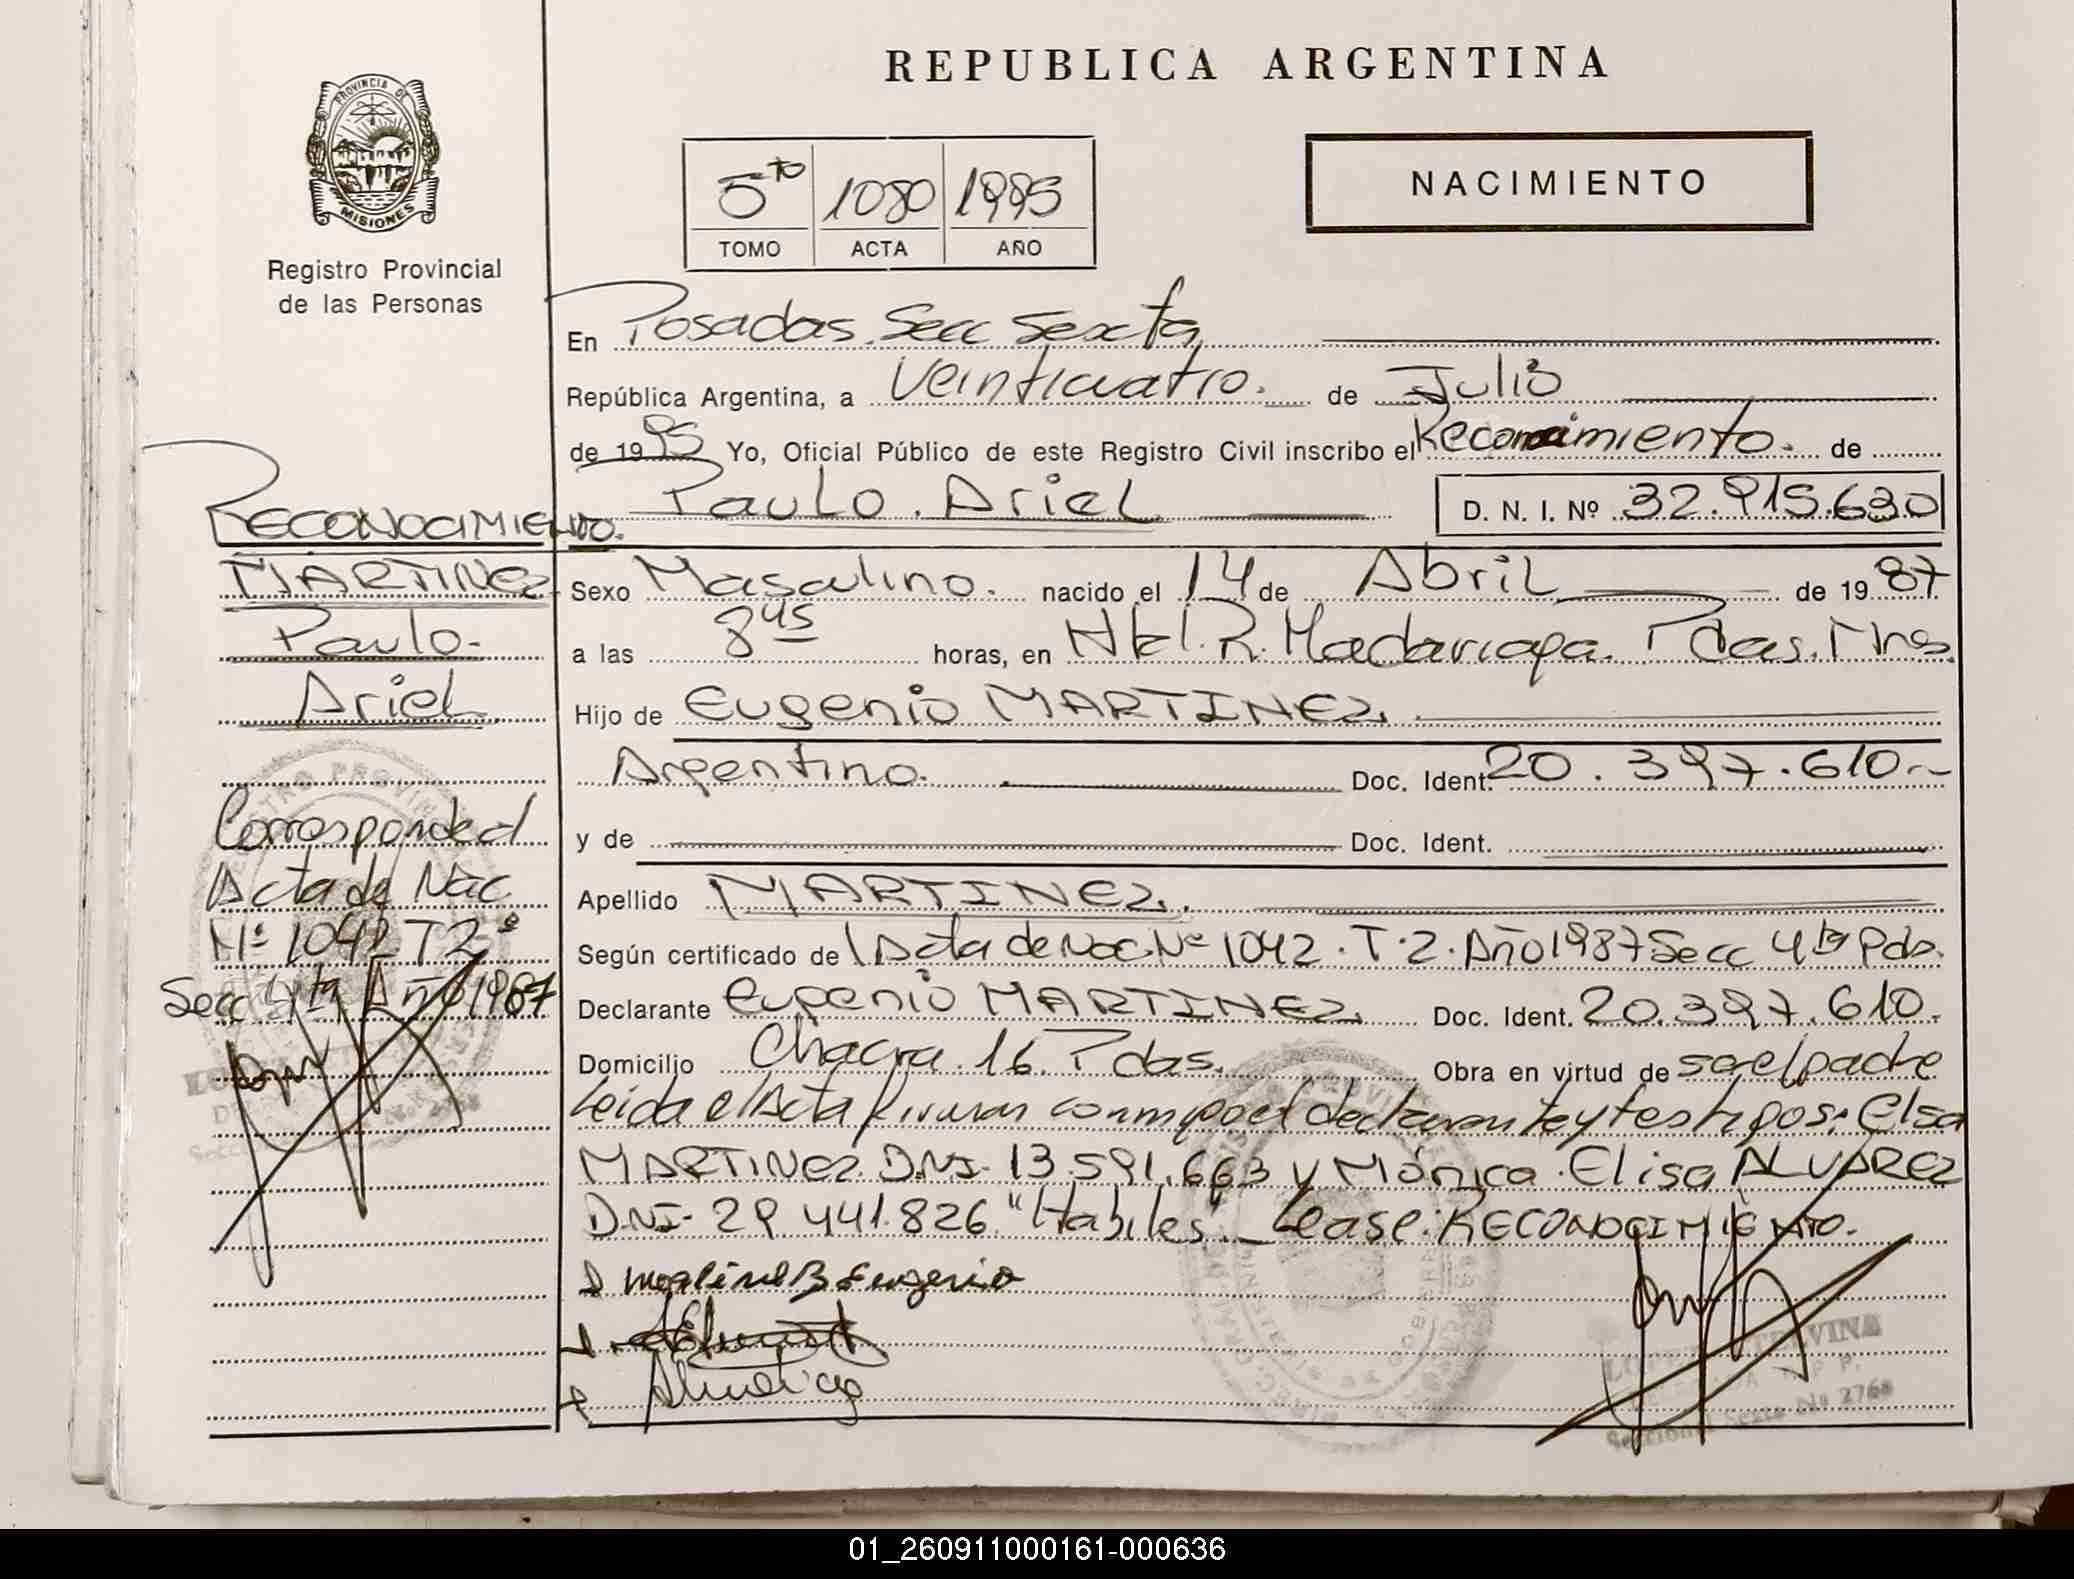 REPUBLICA ARGENTINA
PROVINCIA DE
MISIONES
Registro Provincial
de las Personas
5to 1080 1995
TOMO ACTA AÑO
NACIMIENTO
En Posadas. Secc Sexta
República Argentina, a Veinticuatro. de Julio
de 1995 Yo, Oficial Público de este Registro Civil inscribo el Reconocimiento. de
Paulo. Ariel D. N. I. Nº 32.915.630
Sexo Masculino. nacido el 14 de Abril de 1987
a las 8 45 horas, en Htal. R. Madariaga. Pdas. Mnes.
Hijo de Eugenio MARTINEZ.
Argentino. Doc. Ident. 20.397.610.-
y de Doc. Ident.
Apellido MARTINEZ.
Según certificado de Acta de Nac Nº 1042. T. 2. Año 1987 Secc 4ta Pdas.
Declarante Eugenio MARTINEZ. Doc. Ident. 20.397.610.
Domicilio Chacra. 16. Pdas. Obra en virtud de ser el padre
Leida el Acta firman conmigo el declarante y testigos: Elsa
MARTINEZ. D.N.I. 13.591.663 y Mónica. Elisa ALVAREZ
D.N.I. 29.441.826. "Habiles". Lease: RECONOCIMIENTO.
RECONOCIMIENTO.
MARTINEZ
Paulo.
Ariel
Corresponde al
Acta de Nac
Nº 1042 T 2º
Secc 4ta Año 1987
Martinez Eugenio
Seccional Sexta Nº 2768
01_260911000161-000636